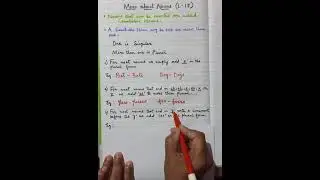 More about Nouns (L-18)
• Nouns that can be counted are called
Countable Nouns.
• A Countable Noun may be one or more than
one.
One is Singular
More than one is Plural
1) For most nouns we simply add 's' in the
plural form
Eg: Bat - Bats Dog - Dogs
2) For most nouns that end in
we add 'es' to make them plural.
Eg:
3) For most nouns that end in 'y' with a consonant
before the 'y' we add 'ies' in the plural form
Eg: